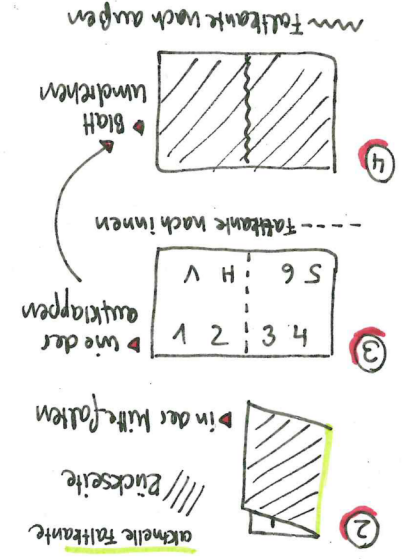 aktuelle Faltkante
Rückseite
2
in der Mitte falten
3
4 3 2 1
5 6 H V
wieder
aufklappen
Faltkante nach innen
4
Blatt
umdrehen
Faltkante nach außen